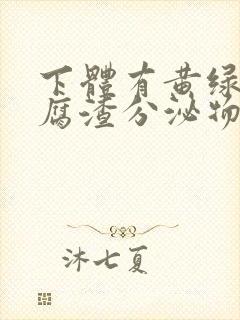 下體有黃綠
腐渣分泌物
沐七夏